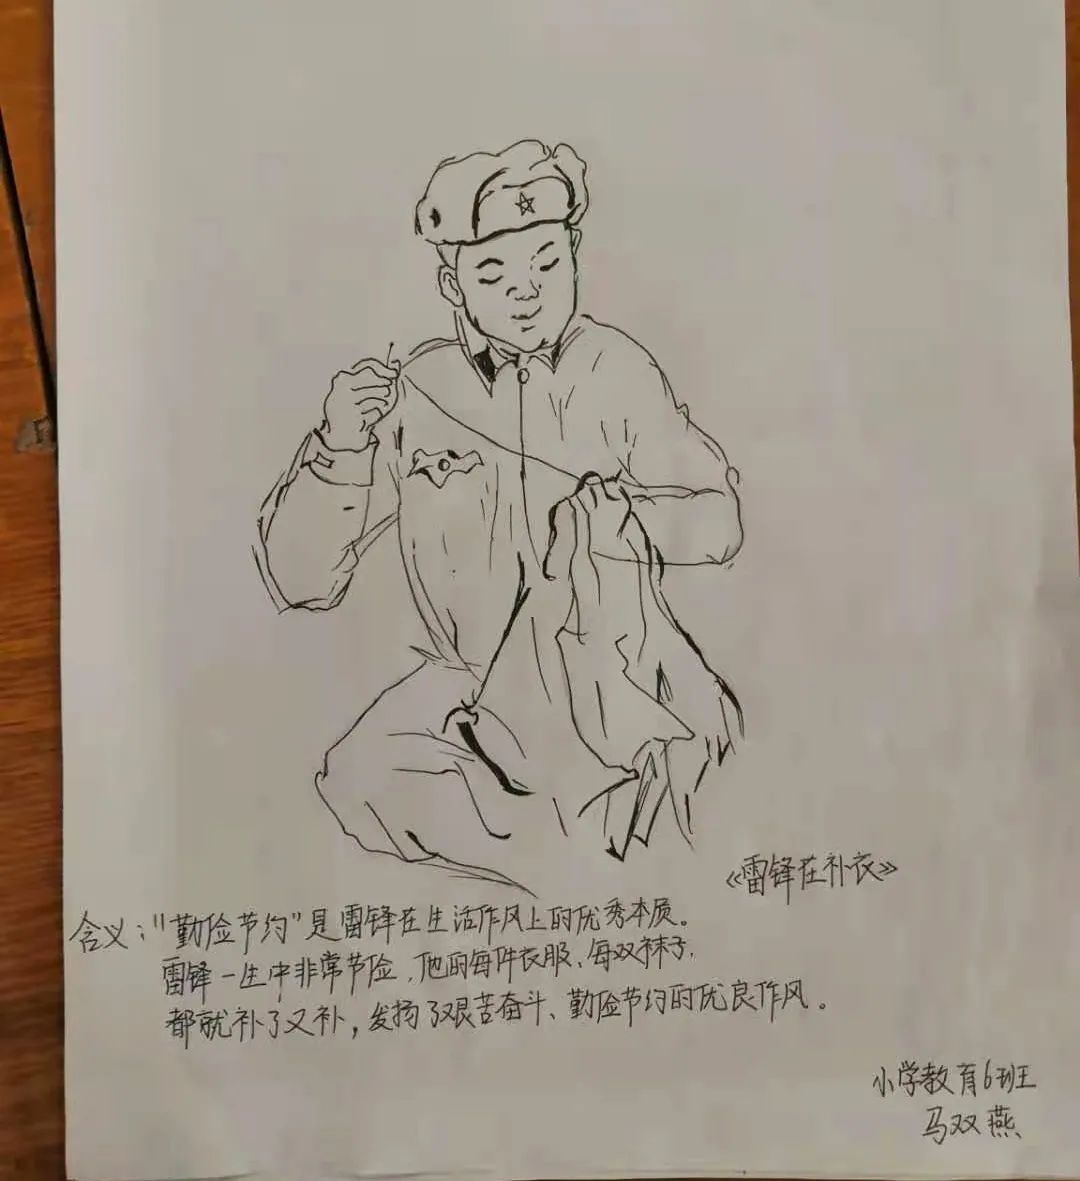 《雷锋在补衣》
含义："勤俭节约"是雷锋在生活作风上的优秀本质。
雷锋一生中非常节俭，他的每件衣服、每双袜子，
都就补了又补，发扬了艰苦奋斗、勤俭节约的优良作风。
小学教育6班
马双燕